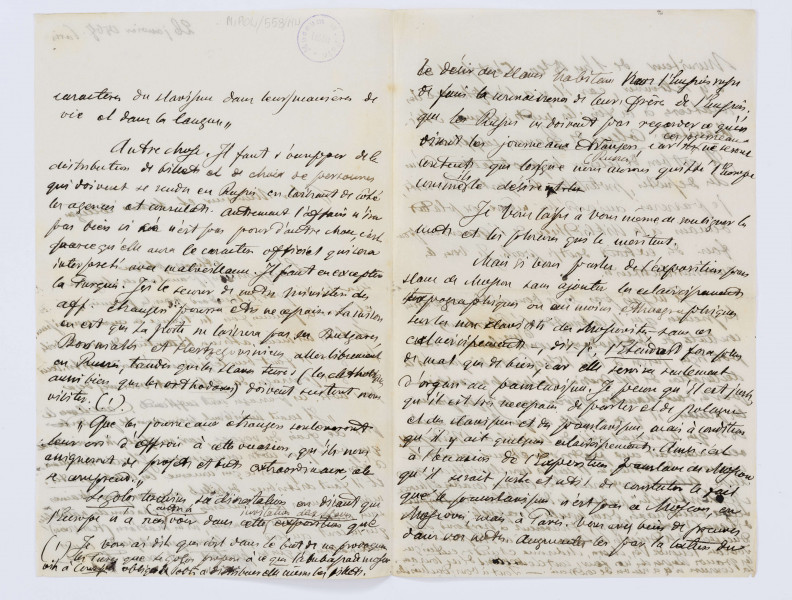 M.POL/558/1111
caractères du slavisme dans leurs manières de
vie et dans la langue„
Autre chose. Il faut s'occuper de la
distribution de billets et de choix de personnes
qui doivent se rendre en Russie en laissant de côté
les agences et consulats. Autrement l'affaire n'ira
pas bien si ce n'est pas pour d'autre chose, c'est
parce qu'elle aura le caractère officiel qui sera
interprété avec malveillance. Il faut en excepter
la Turquie. Ici le secours de notre ministère des
aff. étrangères pourra être nécessaire. La raison
en est que la Porte ne laissera pas ses Bulgares,
Bosniakes et Herzegoviniens aller librement
en Russie, tandis que les slaves turcs (les catholiques
aussi bien que les orthodoxes) doivent surtout nous
visiter. (1).
„Que les journeaux étrangers soulèveront
leur cris d'effroi à cette occasion, qu'ils nous
assigneront de projets et buts extraordinaires, cela
se comprend.„
en disant que
l'Europe n'a rien voir dans cette exposition que
(1) Je vous ai dit que c'est dans le but de ne pas provoquer
les turcs que
obligée de distribuer elle même les billets.
le désir des slaves habitant hors l'Empire russe
de faire la connaissance de leurs frères de l'Empire,
que les Russes ne doivent pas regarder à ce qu'en
disent les journeaux étrangers, car ces journeaux ne seront
contents que lorsque nous aurons quitté l'Europe
comme ils le désirent
Je vous laisse à vous même de souligner les
mots et les phrases qui le méritent.
Mais si vous parlez de l'exposition panslave
de Moscou sans ajouter les éclaircissements
topographiques ou au moins ethnographiques
sur les non slavistes des Moscovites sans ces
éclaircissements, dis-je, l'Etendard fera plus
de mal que de bien, car elle servira seulement
d'organe au panslavisme. Je pense qu'il est juste,
qu'il est très nécessaire de parler et de
et du slavisme et du panslavisme, mais à condition
qu'il y ait quelques éclaircissements. Ainsi c'est
à l'occasion de l'Exposition panslave de Moscou
qu'il serait juste et utile de constater le fait
que le panslavisme n'est pas à Moscou, en
Moscovie, mais à Paris. Vous avez bien de preuves
dans vos notes. Augmentez les par la lettre du